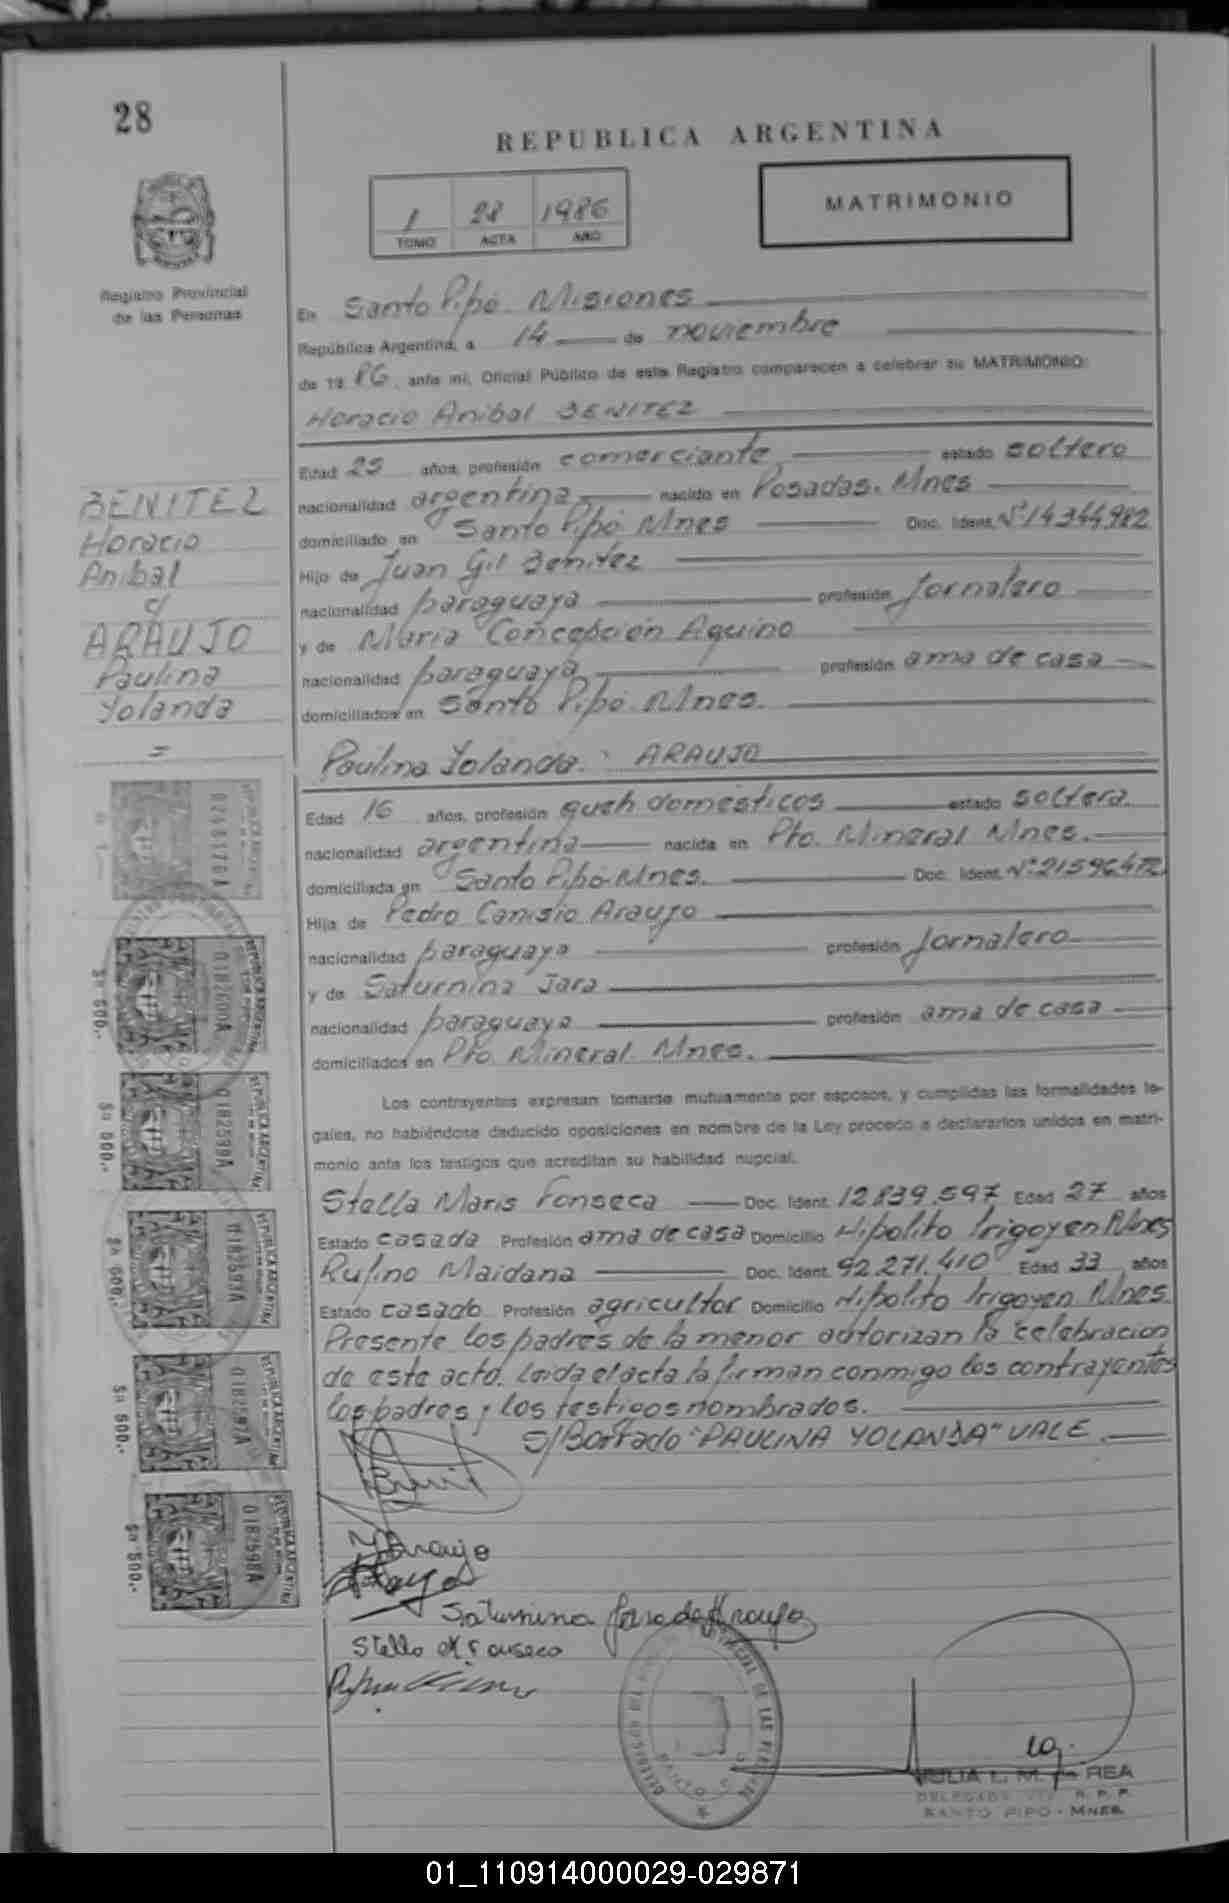 28
REPUBLICA ARGENTINA
1 28 1986
TOMO ACTA AÑO
MATRIMONIO
Registro Provincial
de las Personas
En Santo Pipó. Misiones
República Argentina, a 14 de noviembre
de 19 86, ante mi, Oficial Público de este Registro comparecen a celebrar su MATRIMONIO:
Horacio Anibal BENITEZ
Edad 25 años, profesión comerciante estado soltero
nacionalidad argentina nacido en Posadas. Mnes
domiciliado en Santo Pipó Mnes Doc. Ident. Nº14344982
Hijo de Juan Gil Benitez
nacionalidad paraguaya profesión Jornalero
y de Maria Concepción Aquino
nacionalidad paraguaya profesión ama de casa
domiciliados en Santo Pipó. Mnes.
BENITEZ
Horacio
Anibal
c/
ARAUJO
Paulina
Yolanda
=
Paulina Yolanda. ARAUJO
Edad 16 años, profesión queh. domésticos estado soltera.
nacionalidad argentina nacida en Pto. Mineral Mnes.
domiciliada en Santo Pipó-Mnes. Doc. Ident. Nº21596472
Hija de Pedro Canisio Araujo
nacionalidad paraguaya profesión Jornalero
y de Saturnina Jara
nacionalidad paraguaya profesión ama de casa
domiciliados en Pto. Mineral. Mnes.
Los contrayentes expresan tomarse mutuamente por esposos, y cumplidas las formalidades le-
gales, no habiéndose deducido oposiciones en nombre de la Ley procedo a declararlos unidos en matri-
monio ante los testigos que acreditan su habilidad nupcial.
Stella Maris Fonseca Doc. Ident. 12.839.597 Edad 27 años
Estado casada Profesión ama de casa Domicilio Hipolito Irigoyen Mnes
Rufino Maidana Doc. Ident. 92.271.410 Edad 33 años
Estado casado Profesión agricultor Domicilio Hipolito Irigoyen Mnes.
Presente los padres de la menor autorizan la celebracion
de este acto. Leida el acta la firman conmigo los contrayentes
los padres y los testigos nombrados.
S/Borrado "PAULINA YOLANDA" VALE.
REPUBLICA ARGENTINA
0182600A
$a 500.-
0182599A
$a 500.-
$a 500.-
0182597A
$a 500.-
0182598A
$a 500.-
Y Araujo
Saturnina Jara de Araujo
Stella M Fonseca
JULIA L. M. REA
DELEGADA R. P. P.
SANTO PIPO - MNES.
01_110914000029-029871